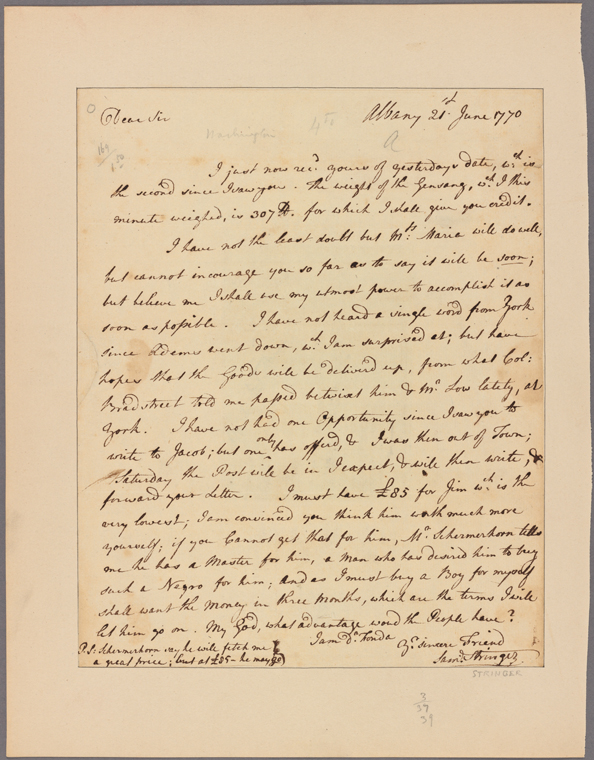 Dear Sir
Albany 21st June 1770
Washington
I just now recd. yours of yesterdays date, wch. is
the second since I saw you. The weight of the Gensang, wch. I this
minute weighed, is 307 lb. for which I shall give you credit.
I have not the least doubt but Mrs. Maria will do well,
but cannot incourage you so far as to say it will be soon;
but believe me I shall use my utmost power to accomplish it as
soon as possible. I have not heard a single word from York
since Adems went down, wch. I am surprised at; but have
hopes that the Goods will be deliverd up, from what Col:
Bradstreet told me passed betwixt him & Mr. Low lately, at
York. I have not had one Opportunity since I saw you to
write to Jacob; but one only has offerd, & I was then out of Town;
Saturday the Post will be in I expect, & will then write, &
forward your Letter. I must have £85 for Jim wch. is the
very lowest; I am convinced you think him worth much more
yourself; if you Cannot get that for him, Mr. Schermerhorn tells
me he has a Master for him, a Man who has desired him to buy
such a Negro for him; and as I must buy a Boy for myself
shall want the Money in three Months, which are the terms I will
let him go on. My God, what advantage woud the People have?
I am Dr. Fonda Yr. sincere Friend
Saml. Stringer
P.S: Schermerhorn say he will fetch me
a great price; but at £85 - he may go
STRINGER
3
39
39